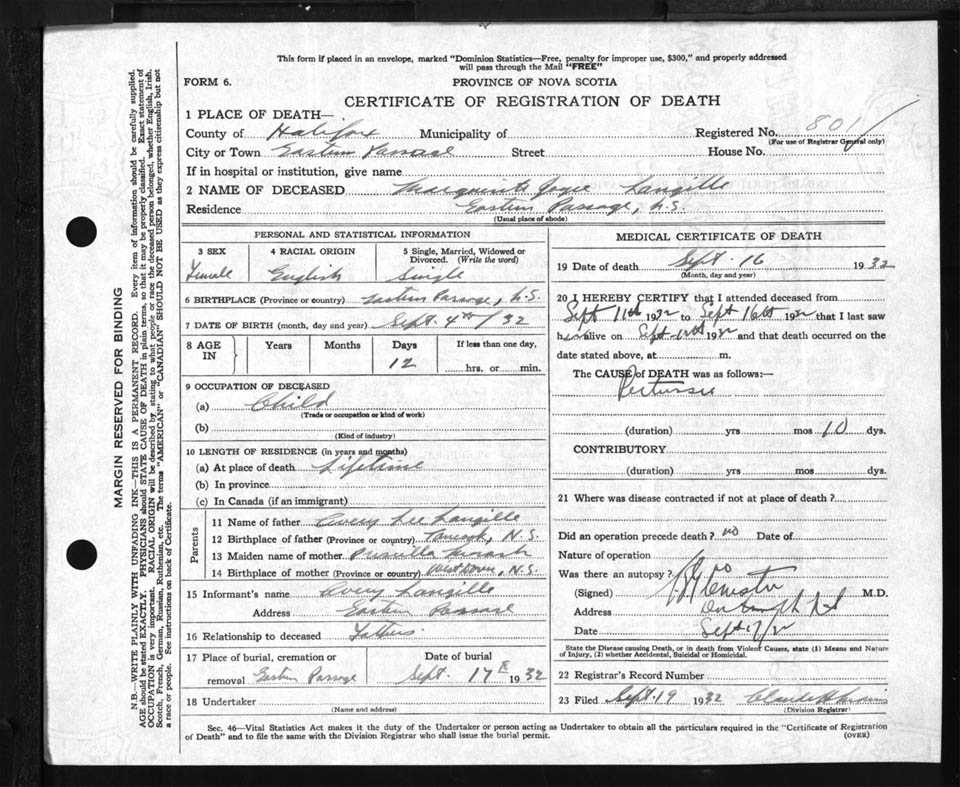 This form if placed in an envelope, marked "Dominion Statistics—Free, penalty for improper use, $300," and properly addressed
will pass through the Mail "FREE"
FORM 6.
PROVINCE OF NOVA SCOTIA
CERTIFICATE OF REGISTRATION OF DEATH
1 PLACE OF DEATH—
County of Halifax Municipality of Registered No. 801
(For use of Registrar General only)
City or Town Eastern Passage Street House No.
If in hospital or institution, give name
2 NAME OF DECEASED Joyce Langille
Residence Eastern Passage, N.S.
(Usual place of abode)
PERSONAL AND STATISTICAL INFORMATION
3 SEX 4 RACIAL ORIGIN 5 Single, Married, Widowed or
Divorced. (Write the word)
Female English Single
6 BIRTHPLACE (Province or country) Eastern Passage, N.S.
7 DATE OF BIRTH (month, day and year) Sept. 4th / 32
8 AGE IN Years Months Days If less than one day,
12 hrs. or min.
9 OCCUPATION OF DECEASED
(a) Child
(Trade or occupation or kind of work)
(b)
(Kind of industry)
10 LENGTH OF RESIDENCE (in years and months)
(a) At place of death Lifetime
(b) In province
(c) In Canada (if an immigrant)
Parents
11 Name of father Avery Lee Langille
12 Birthplace of father (Province or country) Tancook, N.S.
13 Maiden name of mother Priscilla
14 Birthplace of mother (Province or country) West Dover, N.S.
15 Informant's name Avery Langille
Address Eastern Passage
16 Relationship to deceased Father
17 Place of burial, cremation or Date of burial
removal Eastern Passage Sept. 17 1932
18 Undertaker
(Name and address)
MEDICAL CERTIFICATE OF DEATH
19 Date of death Sept. 16 1932
(Month, day and year)
20 I HEREBY CERTIFY that I attended deceased from
Sept 11th 1932 to Sept 16th 1932 that I last saw
h alive on Sept 1932 and that death occurred on the
date stated above, at m.
The CAUSE of DEATH was as follows:—
Pertussis
(duration) yrs mos 10 dys.
CONTRIBUTORY
(duration) yrs. mos. dys.
21 Where was disease contracted if not at place of death?
Did an operation precede death? no Date of
Nature of operation
Was there an autopsy? no
(Signed) M.D.
Address Dartmouth N.S.
Date Sept 17/32
State the Disease causing Death, or in death from Violent Causes, state (1) Means and Nature
of Injury, (2) whether Accidental, Suicidal or Homicidal.
22 Registrar's Record Number
23 Filed Sept. 19 1932
(Division Registrar)
Sec. 46—Vital Statistics Act makes it the duty of the Undertaker or person acting as Undertaker to obtain all the particulars required in the "Certificate of Registration
of Death" and to file the same with the Division Registrar who shall issue the burial permit. (OVER)
MARGIN RESERVED FOR BINDING
N.B.—WRITE PLAINLY WITH UNFADING INK—THIS IS A PERMANENT RECORD. Every item of information should be carefully supplied.
AGE should be stated EXACTLY. PHYSICIANS should STATE CAUSE OF DEATH in plain terms, so that it may be properly classified. Exact statement of
OCCUPATION is very important. RACIAL ORIGIN will be described by stating to what people or race the deceased person belonged, whether English, Irish,
Scotch, French, German, Russian, Ruthenian, etc. The terms "AMERICAN" or "CANADIAN" SHOULD NOT BE USED as they express citizenship but not
a race or people. See instructions on back of Certificate.